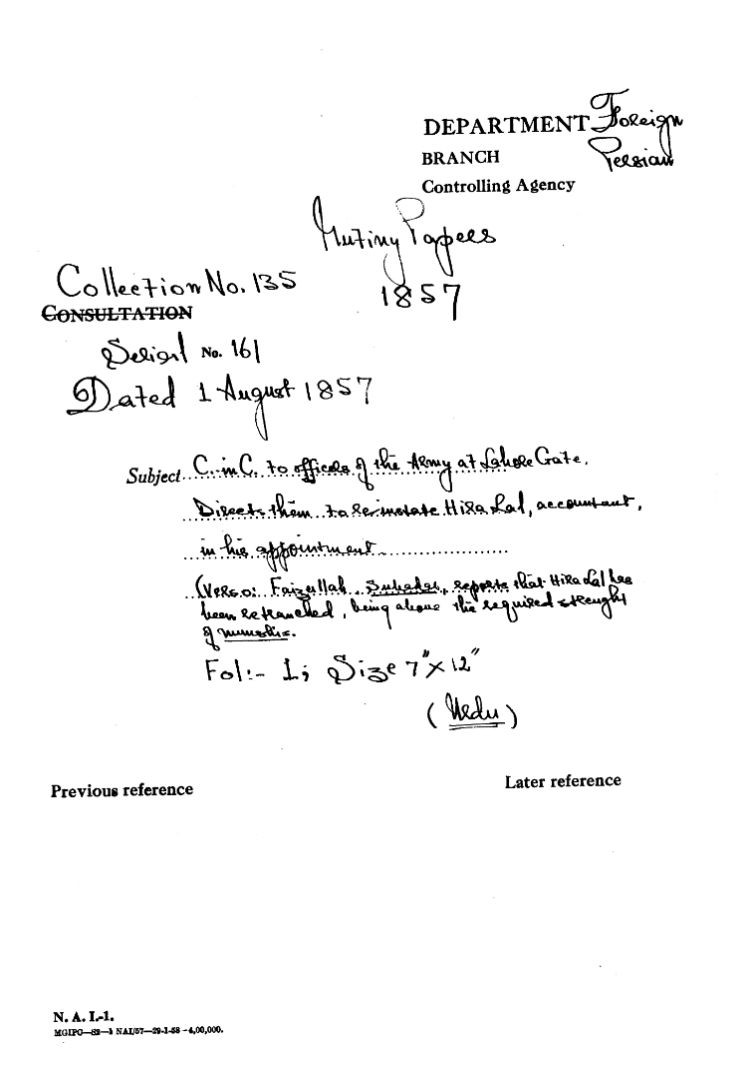 DEPARTMENT Foreign
BRANCH Persian
Controlling Agency
Mutiny Papers
1857
Collection No. 135
CONSULTATION
Serial No. 161
Dated 1 August 1857
Subject C.-in C. to officers of the Army at Lahore Gate.
Directs them to re-instate Hira Lal, accountant,
in his appointment
(Verso: Faizullah, Subadar, reports that Hira Lal has
been retrenched, being above the required strenght
of munshis.
Fol:- 1; Size 7"x12"
(Urdu)
Previous reference
Later reference
N. A. I.-1.
MGIPC—S2—1 NAI/57—29-1-58—4,00,000.